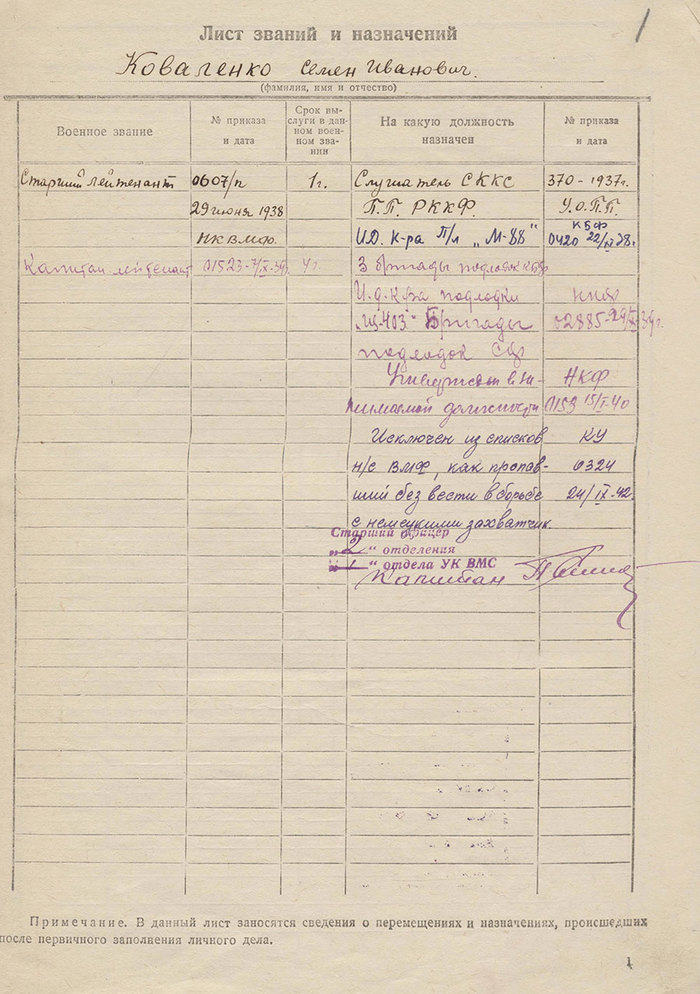 1
Лист званий и назначений
Коваленко Семен Иванович.
(фамилия, имя и отчество)
Военное звание
№ приказа
и дата
Срок вы-
слуги в дан
ном воен-
ном зва-
нии
На какую должность
назначен
№ приказа
и дата
Старший лейтенант 0607/п 1г. Слушатель СККС 370-1937г.
29 июня 1938 П.П. РККФ. У.О.П.П.
НКВМФ. И.Д. к-ра п/л „М-88" КБФ 0420 22/XI 38г.
Капитан лейтенант 01523-7/IX-39г. 4г. 3 бригады подлодок КБФ
И.д. к-ра подлодки
„Щ-403" Бригады 02885-29/X-39г.
подлодок СФ
Утвержден в за- НКФ
нимаемой должности 0153 15/I-40
Исключен из списков КУ
н/с ВМФ, как пропав- 0324
ший без вести в борьбе 24/IX-42.
с немецкими захватчик.
Старший офицер
„2" отделения
„1" отдела УК ВМС
Капитан
Примечание. В данный лист заносятся сведения о перемещениях и назначениях, происшедших
после первичного заполнения личного дела.
1